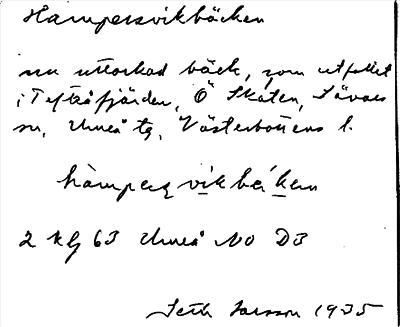 Hampersvikbäcken
nu uttorkad bäck, som utfallit
i Tefteåfjärden, Ö Skäten, Sävars
sn, Umeå tg, Västerbottens l.
hàmperʂ vik bé, ken
2 kg 63 Umeå NO D3
Seth Larsson 1935